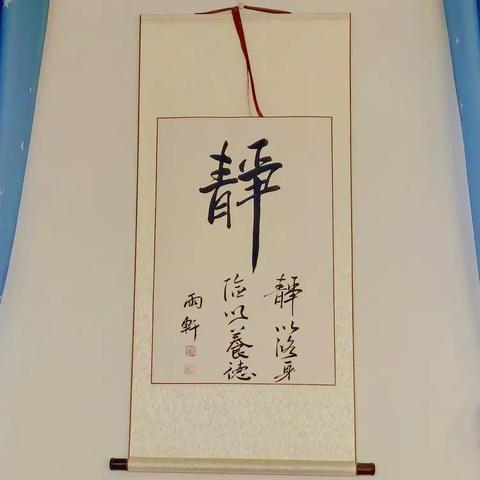 靜
靜以修身
儉以養德
雨軒